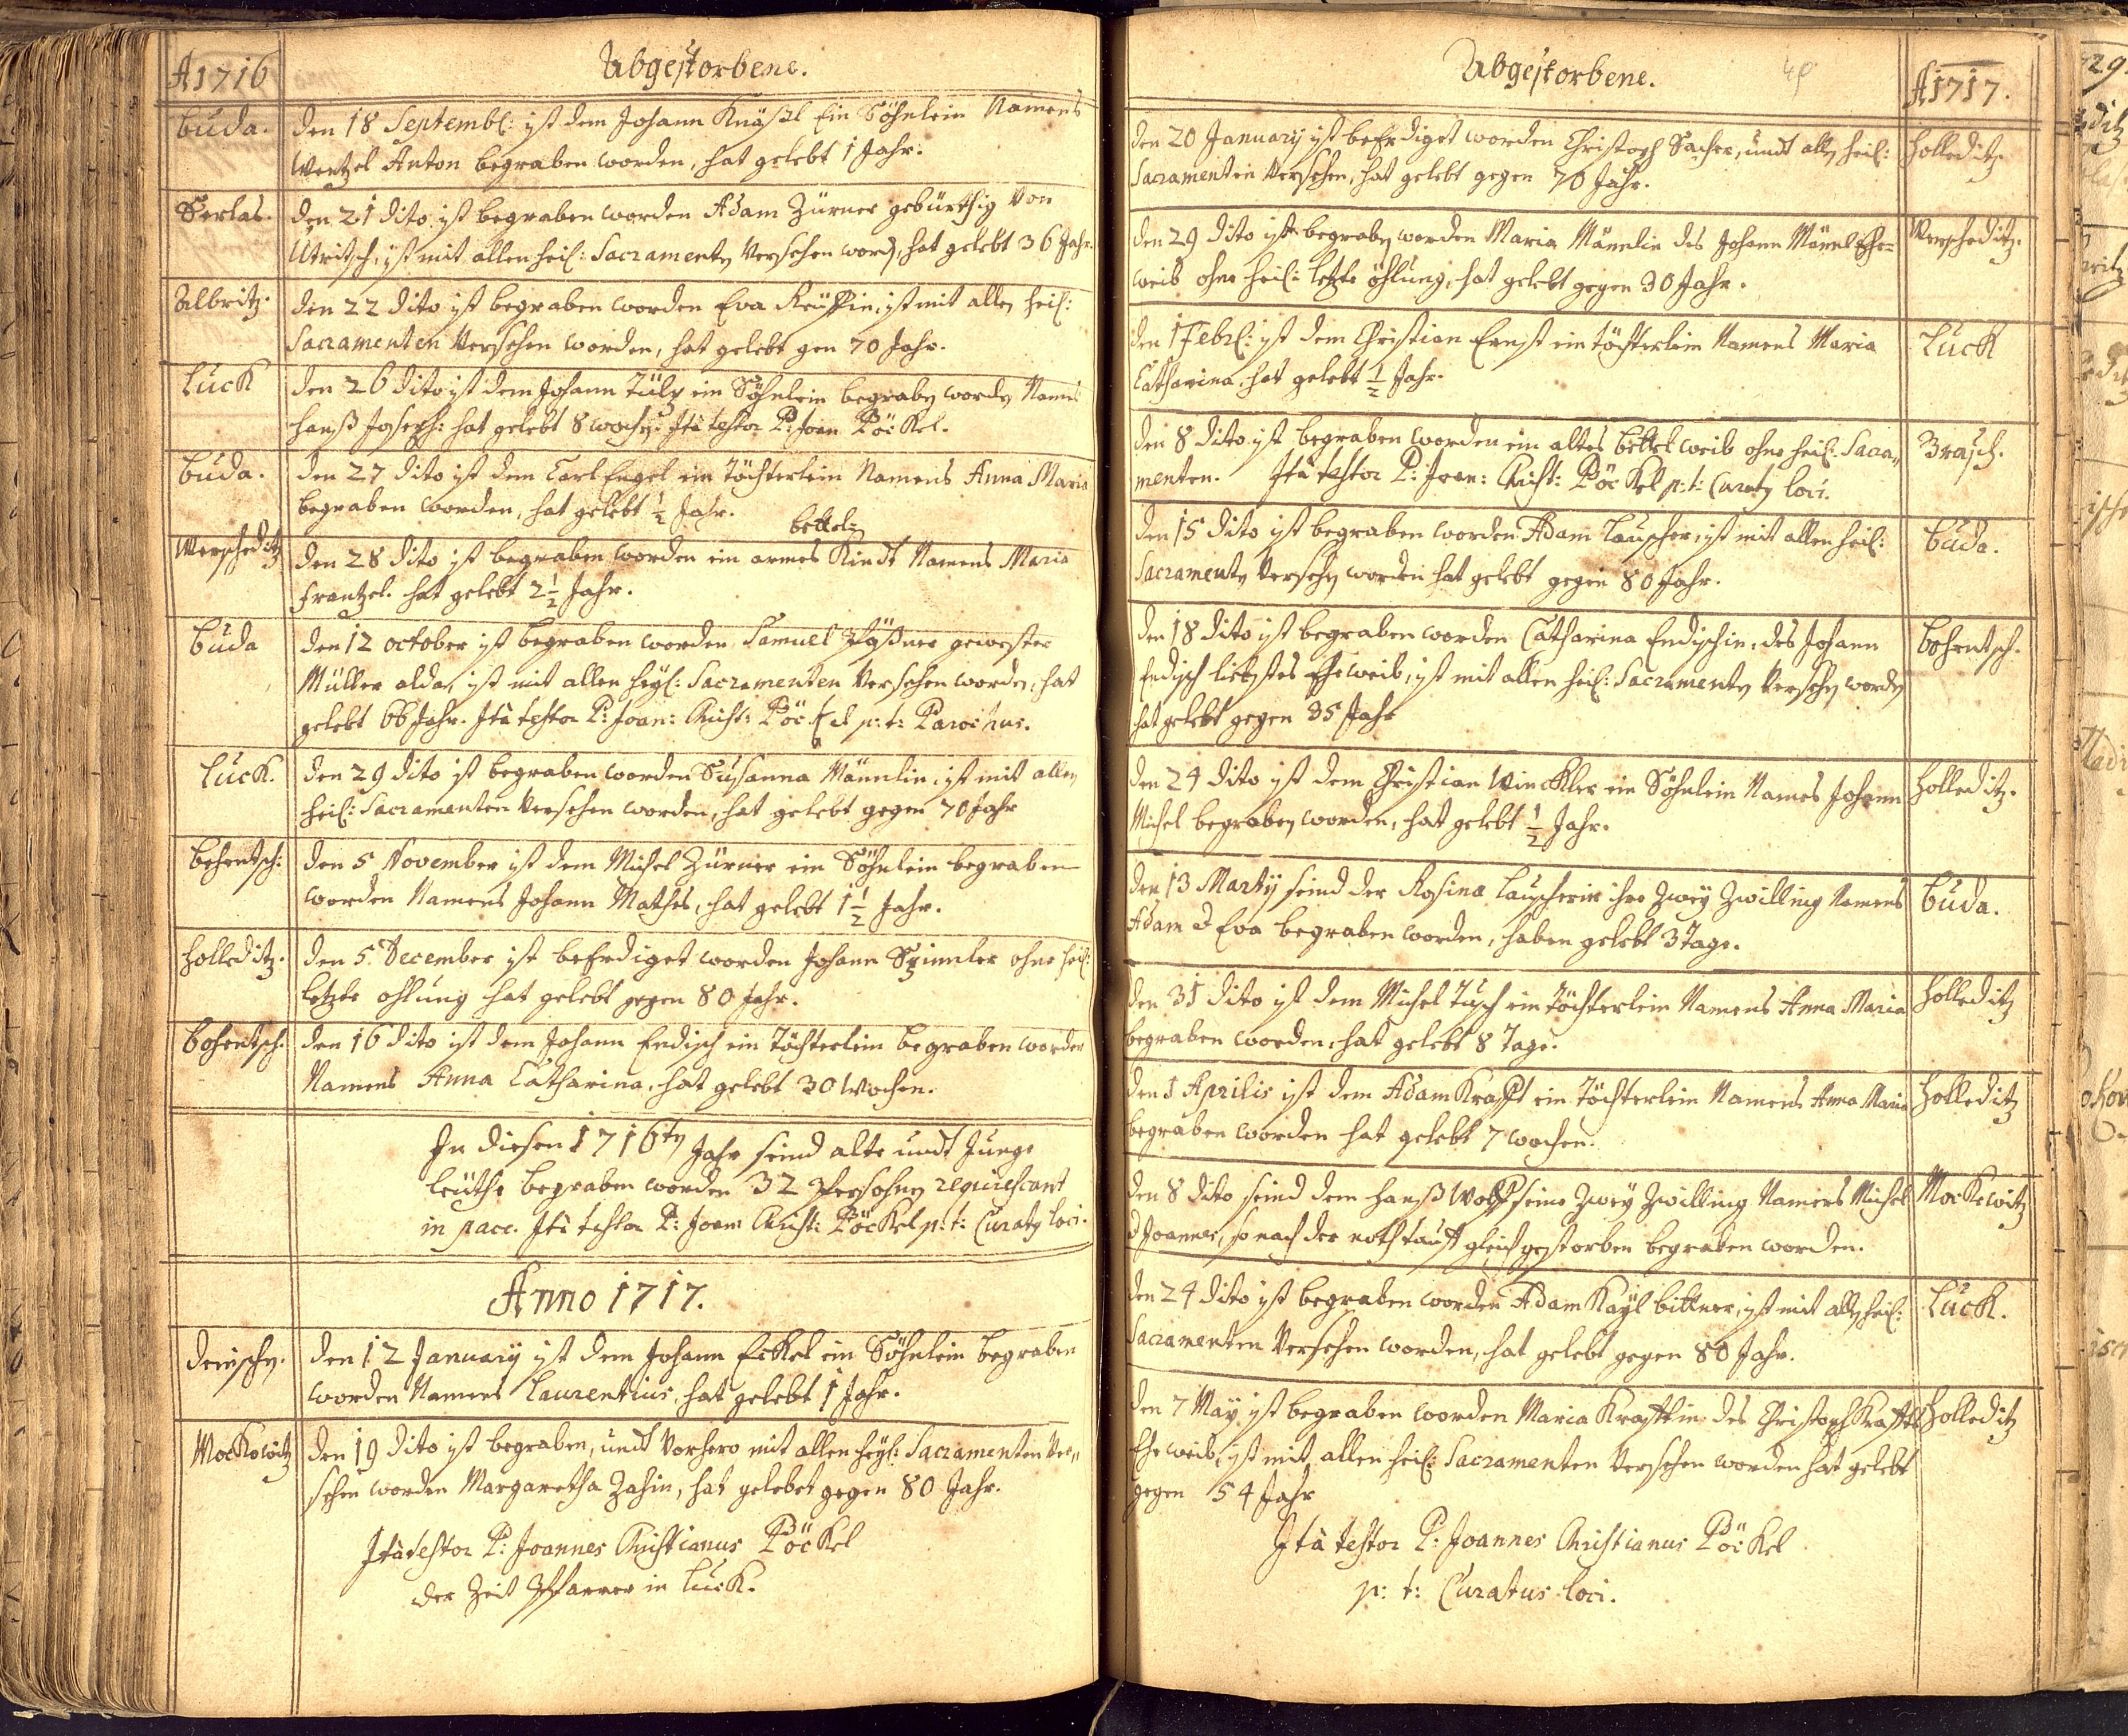 A 1716
Abgestorbene.
Buda.
Den 18 Septembl: ist dem Johann Knäßl Ein Söhnlein Namens
Wentzel Anton begraben worden, hat gelebt 1 Jahr.
Serlas.
Den 21 dito ist begraben worden Adam Zürner gebürthig von
Utritsch, ist mit allen heil: Sacramenten Versehen word, hat gelebt 36 Jahr.
Albritz.
Den 22 dito ist begraben worden Eva, ist mit allen heil:
Sacramenten Versehen worden, hat gelebt gen 70 Jahr.
Luck
Den 26 dito ist dem Johann Tülp ein Söhnlein begraben worden Namens
Hanß Joseph: hat gelebt 8 wochen. Ità testor P: Joan Pöckel.
Buda.
Den 27 dito ist dem Carl Engel ein Töchterlein Namens Anna Maria
begraben worden, hat gelebt ½ Jahr.
bettel=
Werscheditz
Den 28 dito ist begraben worden ein armes Kindt Namens Maria
Frantzel. hat gelebt 2½ Jahr.
Buda
Den 12 october ist begraben worden Samuel gewester
Müller alda, ist mit allen heyl: Sacramenten Versehen worden, hat
gelebt 66 Jahr. Ità testor P: Joan: Christ: Pöckel p: t: Parochus.
Luck.
Den 29 dito ist begraben worden Susanna Männlin, ist mit allen
heil: Sacramenten Versehen worden, hat gelebt gegen 70 Jahr
Bohentsch:
Den 5 November ist dem Michel Zürner ein Söhnlein begraben
worden Namens Johann Mathes, hat gelebt 1½ Jahr.
Holleditz.
Den 5 December ist beErdiget worden Johann Spinnler ohne heil:
letzte ohlung hat gelebt gegen 80 Jahr.
Bohentsch:
Den 16 dito ist dem Johann Endisch ein Töchterlein begraben worden
Namens Anna Catharina, hat gelebt 30 Wochen.
In diesen 1716ten Jahr seind alte undt Junge
leuthe begraben worden 32 Persohnen requiescant
in pace. Ità testor P: Joan: Christ: Pöckel p: t: Curatus loci.
Anno 1717.
Den 12 January ist dem Johann Eckel ein Söhnlein begraben
worden Namens Laurentius, hat gelebt 1 Jahr.
Mockowitz
Den 19 dito ist begraben, undt Vorhero mit allen heyl: Sacramenten Ver=
sehen worden Margaretha Zahin, hat gelebet gegen 80 Jahr.
Ità testor P: Joannes Christianus Pöckel
der Zeit Pfarrer in Luck.
Abgestorbene.
A 1717.
Den 20 January ist beErdiget worden Christoph Sacher, undt allen heil:
Sacramenten Versehen, hat gelebt gegen 70 Jahr.
Holleditz.
Den 29 dito ist begraben worden Maria Männlin des Johann Männl Ehe=
weib ohne heil: letzte öhlung, hat gelebt gegen 30 Jahr.
Werscheditz.
Den 1 Febrl: ist dem Christian Ernst ein töchterlein Namens Maria
Catharina, hat gelebt ½ Jahr.
Luck
Den 8 dito ist begraben worden ein altes bettelweib ohne heil: Sacra=
menten. Ità testor P: Joan: Christ: Pöckel p: t: Curatus loci.
Prasch.
Den 15 dito ist begraben worden Adam Lauscher, ist mit allen heil:
Sacramenten Versehen worden hat gelebt gegen 80 Jahr.
Buda.
Den 18 dito ist begraben worden Catharina Endischin, des Johann
Endisch liebstes Eheweib, ist mit allen heil: Sacramenten Versehen worden
hat gelebt gegen 35 Jahr
Bohentsch.
Den 24 dito ist dem Christian Winckler ein Söhnlein Names Johann
Michel begraben worden, hat gelebt ½ Jahr.
Holleditz.
Den 13 Martÿ seind der Rosina Lauscherin ihre Zweÿ Zwilling Namens
Adam & Eva begraben worden, haben gelebt 3 Tage.
Buda.
Den 31 dito ist dem Michel Tusch ein Töchterlein Namens Anna Maria
begraben worden, hat gelebt 8 Tage.
Holleditz
Den 1 Aprilis ist dem Adam Krafft ein Töchterlein Namens Anna Maria
begraben worden hat gelebt 7 wochen.
Holleditz
Den 8 dito seind dem Hanß Wolf seine Zweÿ Zwilling Namens Michel
& Joannes, so nach der nothtauft gleich gestorben begraben worden.
Mockowitz
Den 24 dito ist begraben worden Adam Kaÿl bittner, ist mit allen heil:
Sacramenten Versehen worden, hat gelebt gegen 80 Jahr.
Luck.
Den 7 Maÿ ist begraben worden Maria Krafftin des Christoph Kraffts
Eheweib, ist mit allen heil: Sacramenten Versehen worden hat gelebt
gegen 54 Jahr
Holleditz
Ità testor P: Joannes Christianus Pöckel
p: t: Curatus loci.